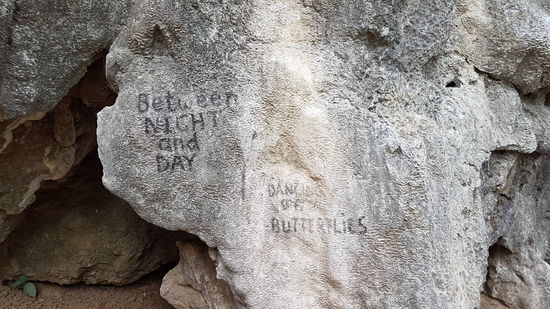 Between
NIGHT
and
DAY
DANCING
BUTTERFLIES